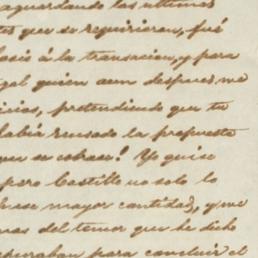 aguardando las ultimas
tes que se requirieran, fué
locis á la transacion, y para
gal quien aun despues me
icias, pretendiendo que tu
habia reusado la propuesta
que se cobrase! Yo quise
pero Castillo no solo lo
base mayor cantidad, y me
mas del temor que he dicho
apuraban para concluir el